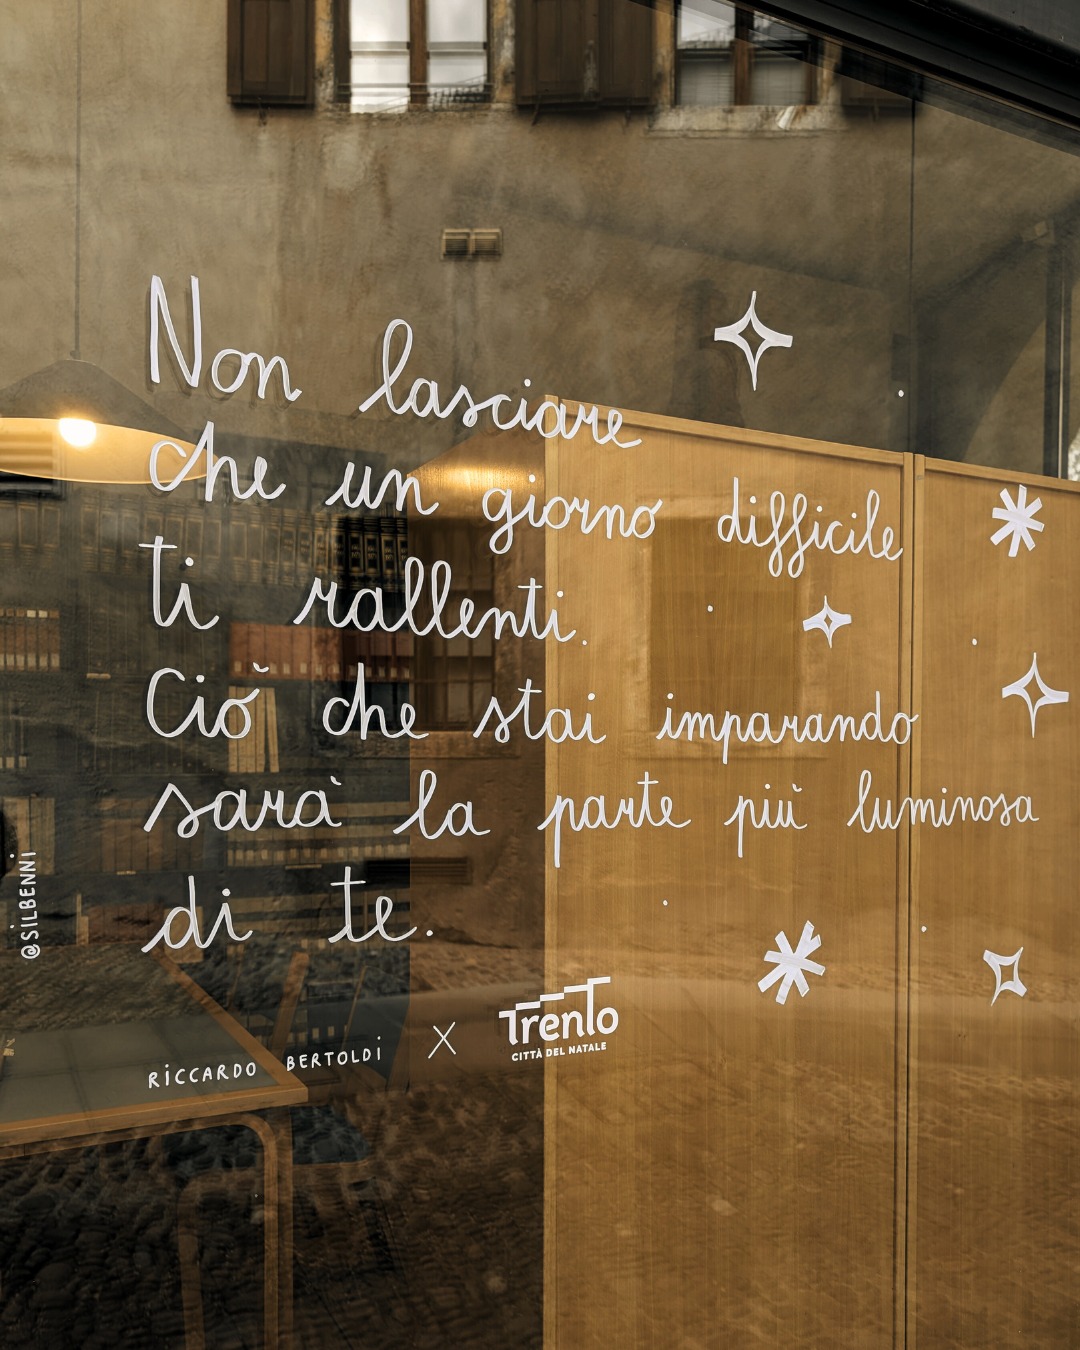 Non lasciare
che un giorno difficile
ti rallenti.
Ciò che stai imparando
sarà la parte più luminosa
di te.
RICCARDO BERTOLDI X Trento
CITTÀ DEL NATALE
@SILBENNI